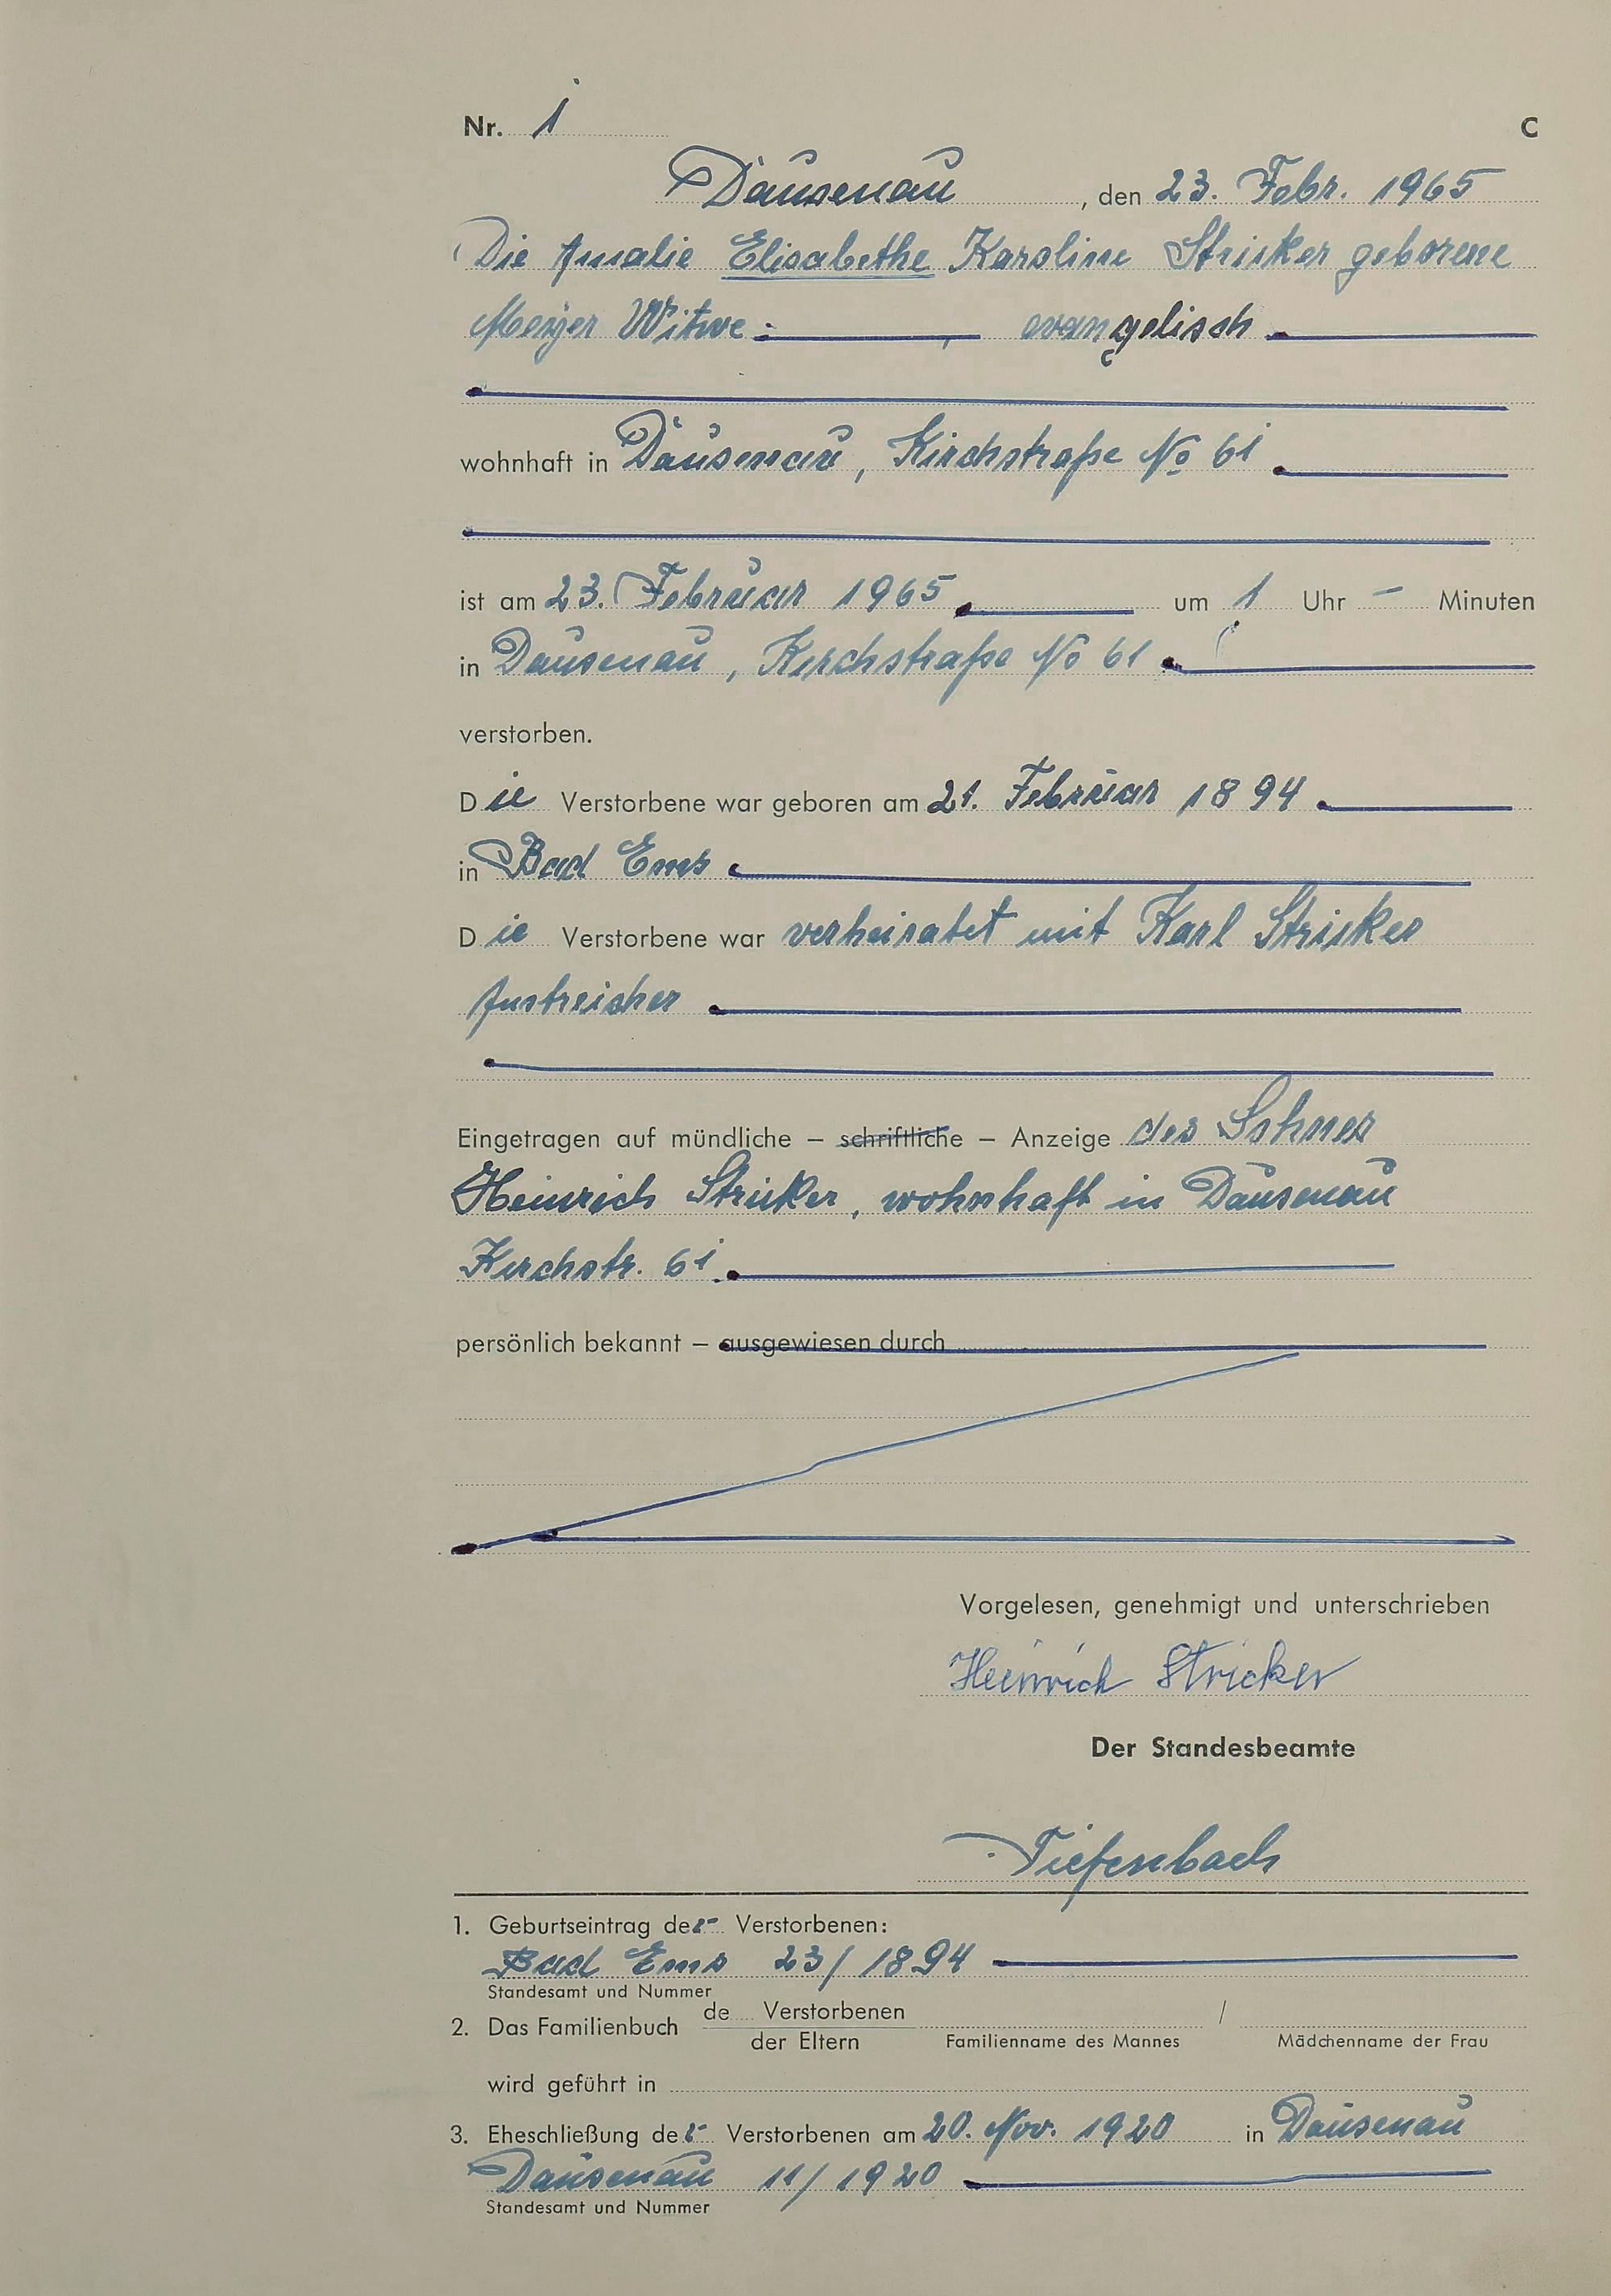 Nr. 1 C
Dausenau, den 23. Febr. 1965
Die Amalie Elisabethe Karoline Stricker geborene
Meyer Witwe evangelisch
wohnhaft in Dausenau, Kirchstraße No 61
ist am 23. Februar 1965 um 1 Uhr – Minuten
in Dausenau, Kirchstraße No 61
verstorben.
Die Verstorbene war geboren am 21. Februar 1894
in Bad Ems
Die Verstorbene war verheiratet mit Karl Stricker
Anstreicher
Eingetragen auf mündliche – schriftliche – Anzeige des Sohnes
Heinrich Stricker, wohnhaft in Dausenau
Kirchstr. 61.
persönlich bekannt – ausgewiesen durch
Vorgelesen, genehmigt und unterschrieben
Heinrich Stricker
Der Standesbeamte
Tiefenbach
1. Geburtseintrag der Verstorbenen:
Bad Ems 23/1894
Standesamt und Nummer
2. Das Familienbuch de Verstorbenen /
der Eltern Familienname des Mannes Mädchenname der Frau
wird geführt in
3. Eheschließung der Verstorbenen am 20. Nov. 1920 in Dausenau
Dausenau 11/1920
Standesamt und Nummer